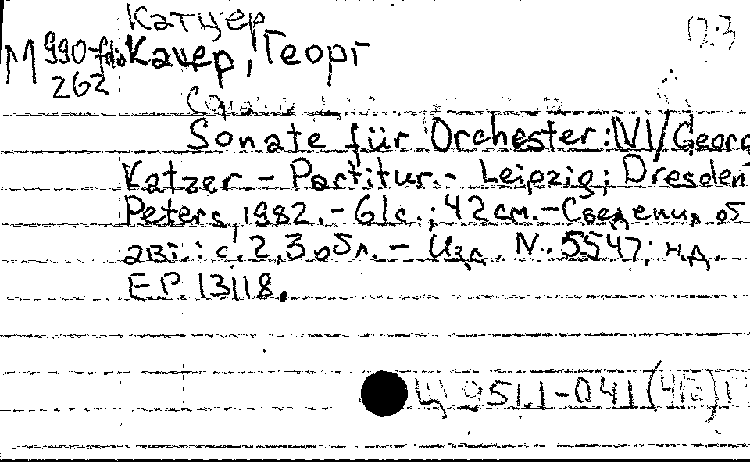 Катцер
М 990-fdo Кацер, Георг
262
Sonate für Orchester: N1/Georg
Katzer - Partitur.- Leipzig; Dresden
Peters, 1982.- 61с.; 42 см.- Сведения об
авт.: с. 2, 3 обл. - Изд. N. 5547; н.д.
E.P. 13118.
Ц 951.1-041